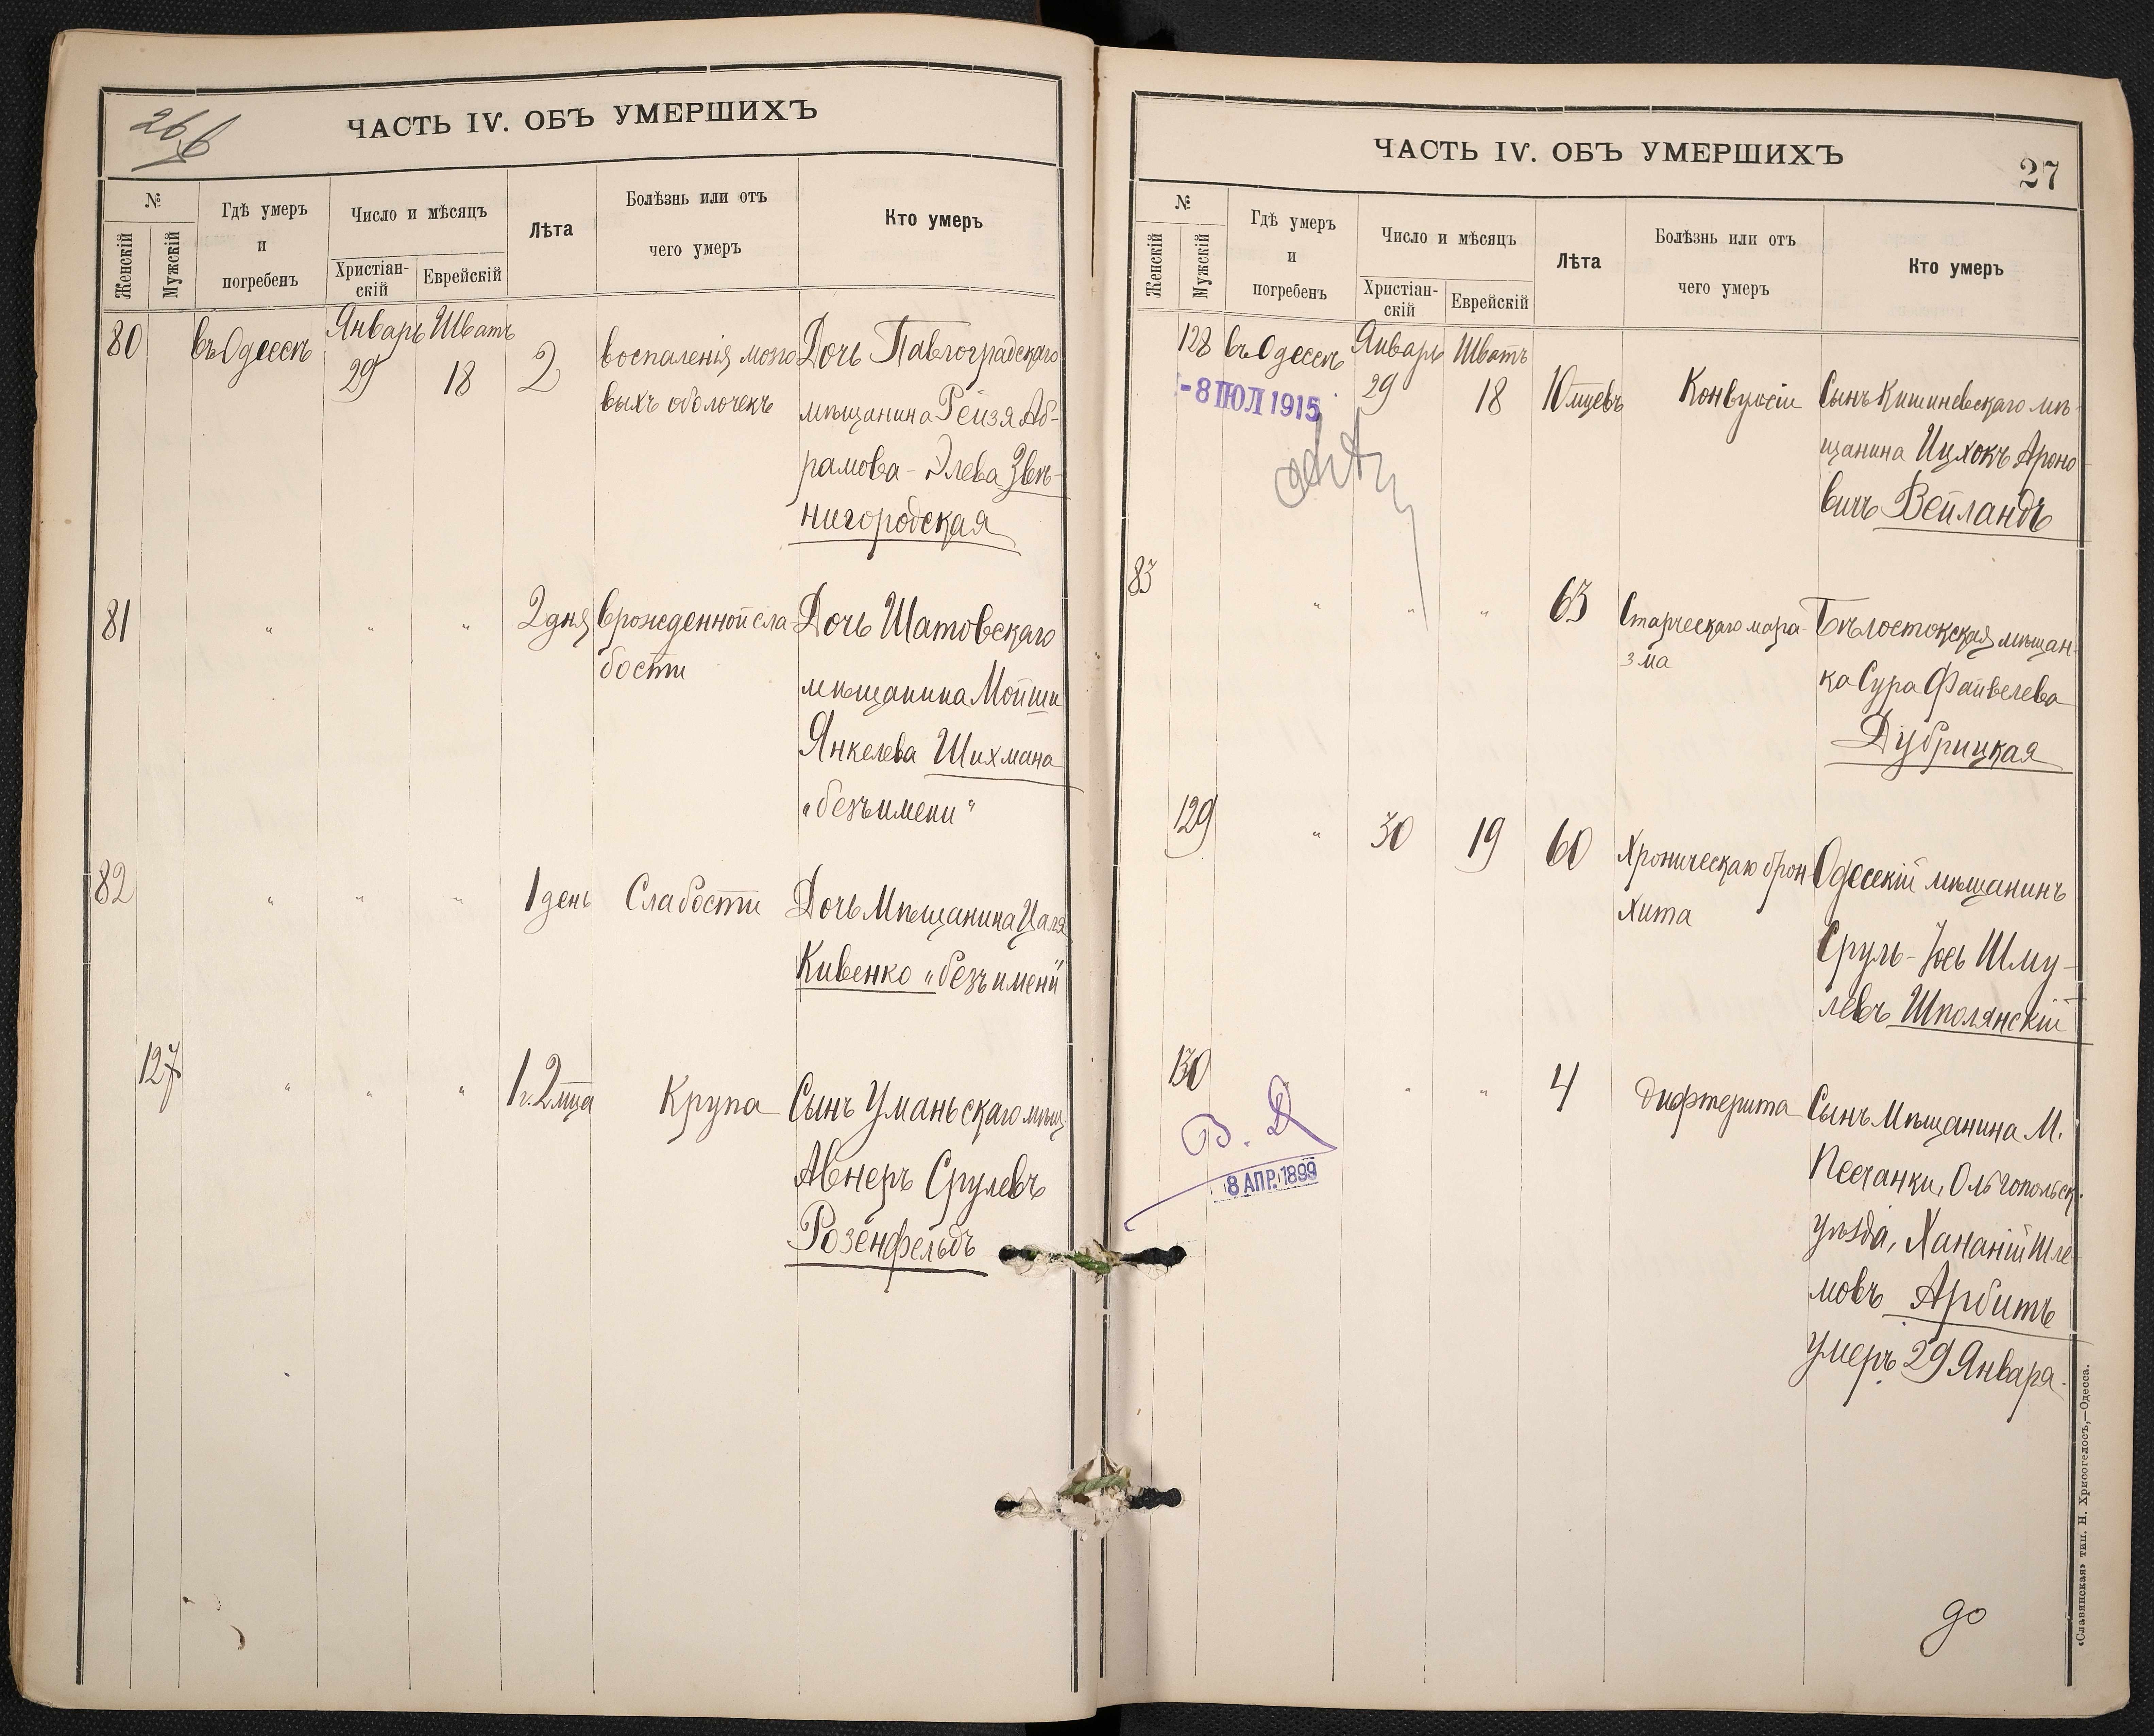 26 б
ЧАСТЬ IV. ОБЪ УМЕРШИХЪ
№
Женскій
Мужскій
Гдѣ умеръ
и
погребенъ
Число и мѣсяцъ
Христіан-
скій
Еврейскій
Лѣта
Болѣзнь или отъ
чего умеръ
Кто умеръ
80 въ Одессѣ Январь 29 Шватъ 18 2
воспаленія мозго
выхъ оболочекъ
Дочь Павлоградскаго
мѣщанина Рейзя Аб-
рамова-Элева Звѣ-
нигородская
81 " " " 2 дня
врожденной сла-
бости
Дочь Шатовскаго
мѣщанина Мойши
Янкелева Шихмана
"безъ имени"
82 " " " 1 день Слабости
Дочь Мѣщанина Цаля
Кивенко "безъ имени"
127 " " " 1 г. 2 мца Крупа
Сынъ Уманьскаго мѣщ
Авнеръ Срулевъ
Розенфельдъ
ЧАСТЬ IV. ОБЪ УМЕРШИХЪ
27
№
Женскій
Мужскій
Гдѣ умеръ
и
погребенъ
Число и мѣсяцъ
Христіан-
скій
Еврейскій
Лѣта
Болѣзнь или отъ
чего умеръ
Кто умеръ
128 въ Одессѣ Январь 29 Шватъ 18 10 мцевъ Конвульсіи
-8 ІЮЛ 1915
Сынъ Кишиневскаго мѣ-
щанина Ицхокъ Ароно
вичъ Вейландъ
83 " " " 63
Старческаго мара-
зма
Бѣлостокская мѣщан-
ка Сура Файвелева
Дубрицкая
129 " 30 19 60
Хроническаго брон
хита
Одесскій мѣщанинъ
Сруль-Іось Шму-
левъ Шполянскій
130 " " 4 Дифтерита
В. Д
8 АПР. 1899
Сынъ Мѣщанина М.
Песчанки, Ольгопольск.
уѣзда, Хананій Шле
мовъ Арбитъ
умеръ 29 Января.
до
«Славянская» тип. Н. Хрисогелосъ,—Одесса.